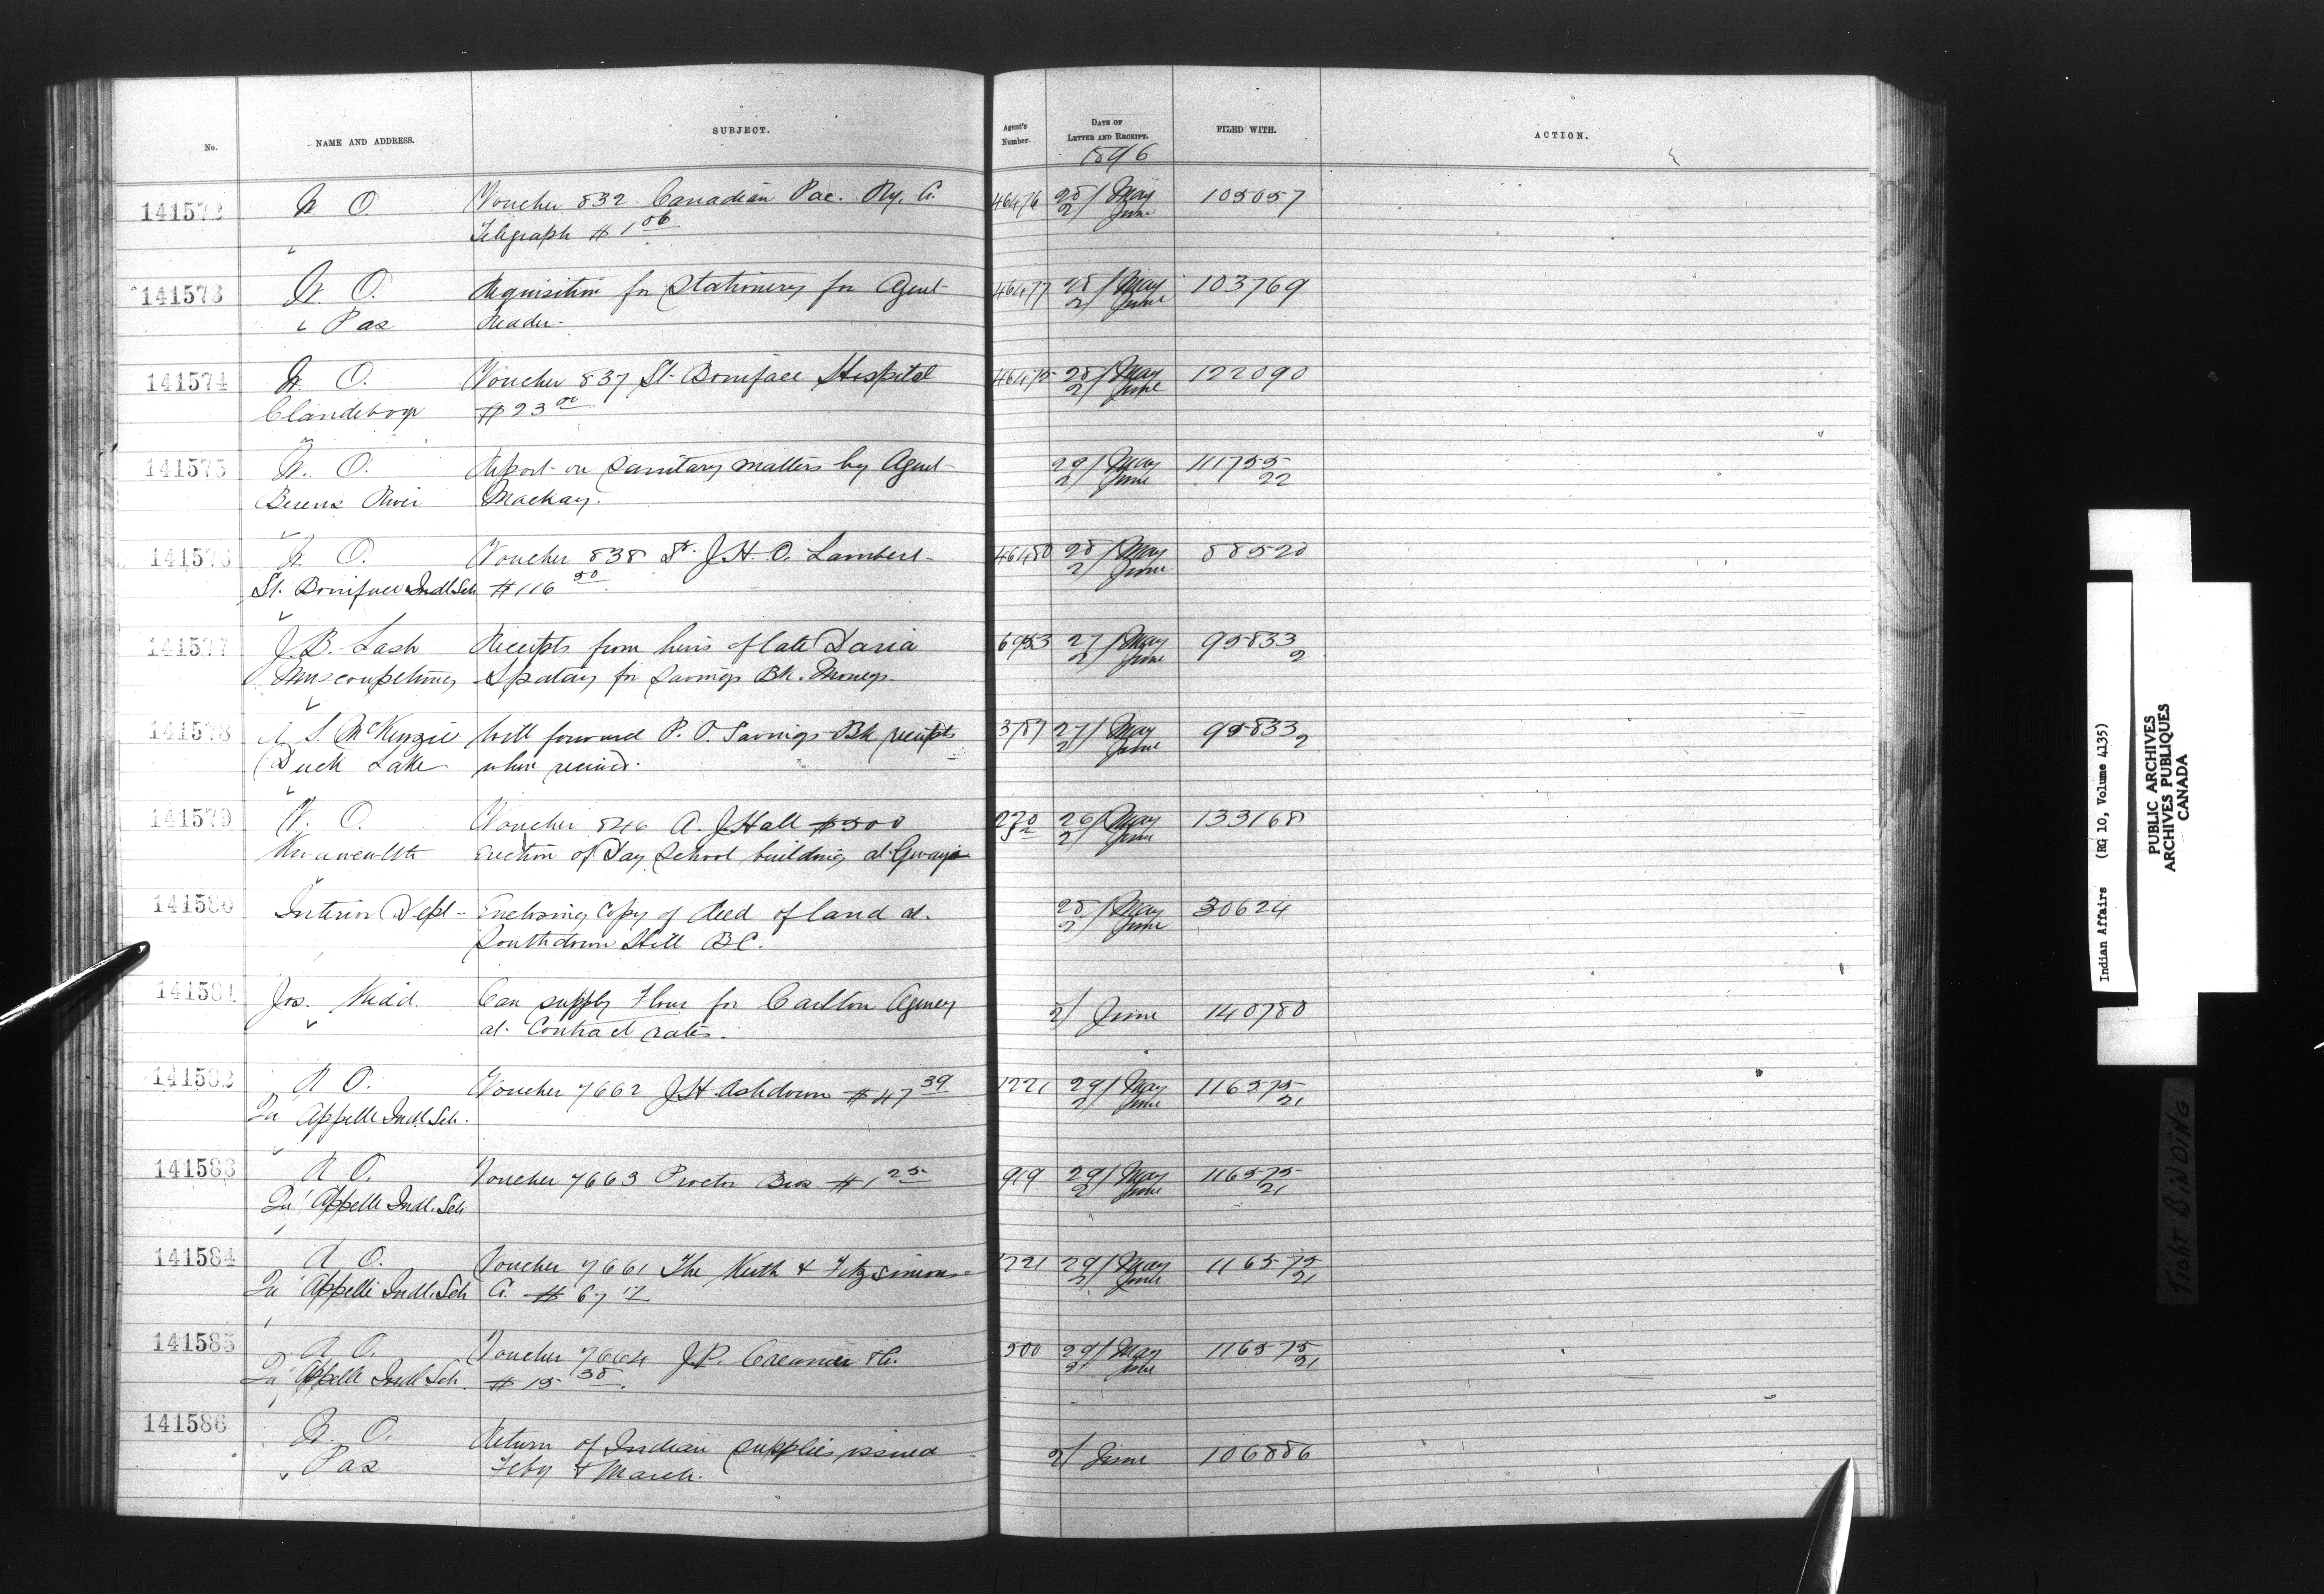 No.
NAME AND ADDRESS.
SUBJECT.
Agent's Number.
DATE OF LETTER AND RECEIPT.
FILED WITH.
ACTION.
1896
141572 W. O. Voucher 832 Canadian Pac. Ry. Co. 46476 28/ May 105057
Telegraph $1 06 2/ June
141573 W. O. Requisition for Stationery for Agent 46477 28/ May 103769
" Pas Reader. 2/ June
141574 W. O. Voucher 837 St. Boniface Hospital 46475 28/ May 122090
Clandeboye $23 00 2/ June
141575 W. O. Report on Sanitary matters by Agent 29/ May 111755
Berens River Mackay. 2/ June 22
141576 W. O. Voucher 838 Dr. J.H.O. Lambert 46480 28/ May 88520
St. Boniface Indl Sch $116 50 2/ June
141577 J.B. Lash Receipts from heirs of late 6953 27/ May 95833
Muscowpetung for Savings Bk. Moneys. 2/ June 2
141578 R. S. McKenzie Will forward P. O. Savings Bk receipts 3787 27/ May 95833
Duck Lake when received. 2/ June 2
141579 V. O. Voucher 846 A. J. Hall $300 26/ May 133168
Kwawcewlth Erection of Day School building at Gwayi 2/ June
141580 Interior Dept Enclosing copy of deed of land at 28/ May 30624
Southdown Hill B.C. 2/ June
141581 Jos. Kidd Can supply Flour for Carlton Agency 2/ June 140780
at Contract rates.
141582 R O. Voucher 7662 J.H. Ashdown $47 39 1221 29/ May 116575
Qu'Appelle Indl. Sch. 2/ June 21
141583 R O. Voucher 7663 Proctor Bros $1 25 919 29/ May 116575
Qu'Appelle Indl. Sch 2/ June 21
141584 R O. Voucher 7661 The Keith & Fitzsimons 1221 29/ May 116575
Qu'Appelle Indl. Sch Co. $67 17 2/ June 21
141585 R O. Voucher 7664 J.P. Creamer & Co. 500 29/ May 116575
Qu'Appelle Indl Sch. $15 38. 2/ June 21
141586 W. O. Return of Indian supplies issued 2/ June 106886
" Pas Feby & March.
Indian Affairs (RG 10, Volume 4135)
PUBLIC ARCHIVES
ARCHIVES PUBLIQUES
CANADA
TIGHT BINDING